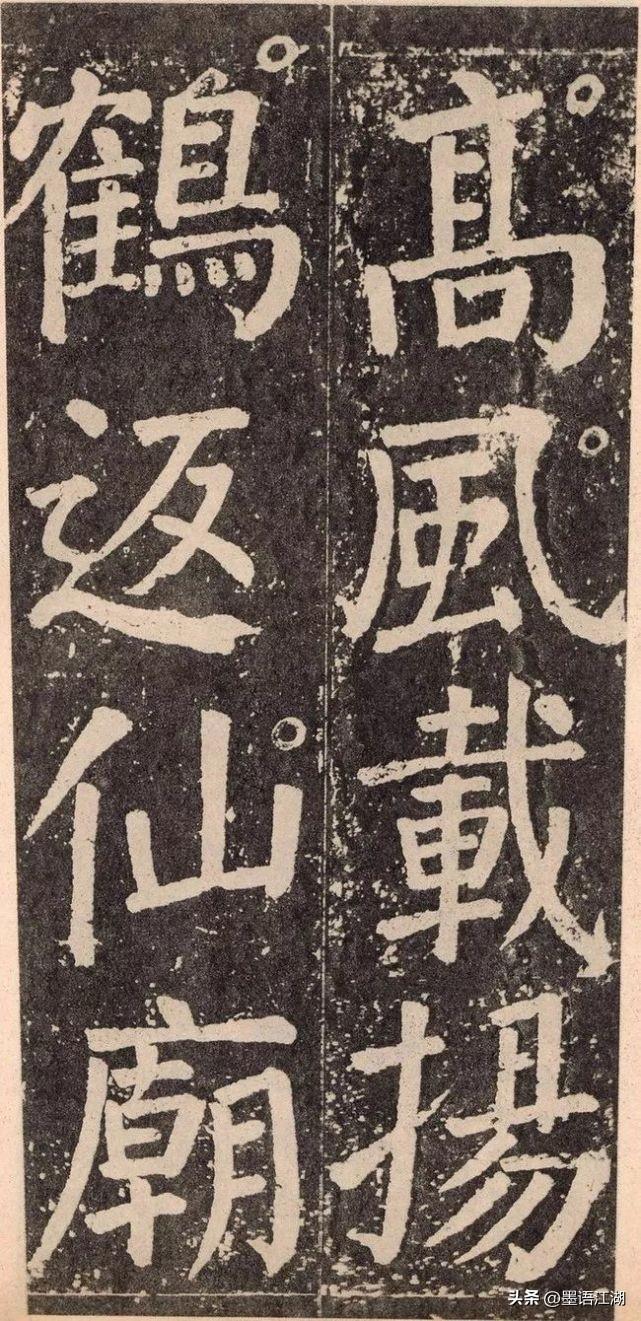 高風載揚
鶴返仙廟
头条 @墨语江湖